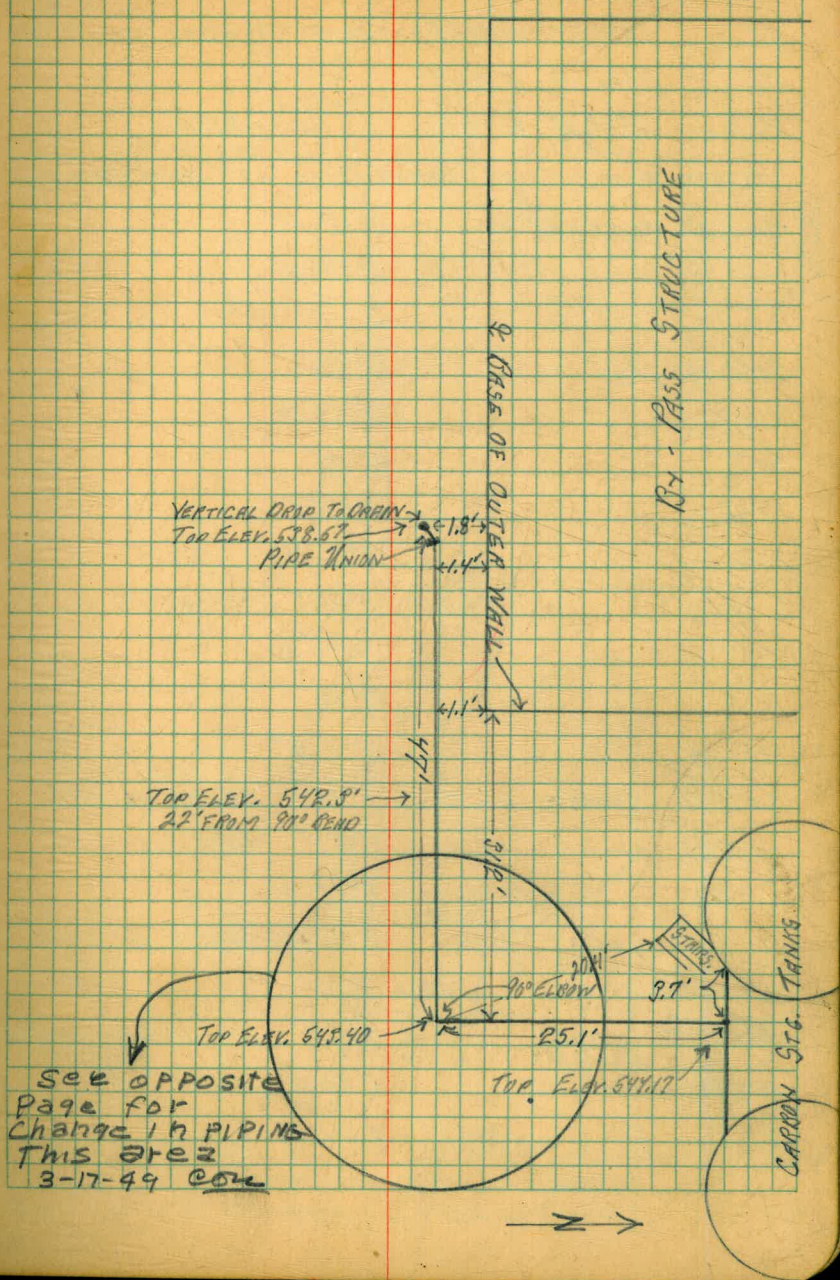 BY-PASS STRUCTURE
℄ BASE OF OUTER WALL
VERTICAL DROP TO DRAIN
TOP ELEV. 538.67
PIPE UNION
1.8'
1.4'
1.1'
47'
TOP ELEV. 542.9'
22' FROM 90° BEND
31.2'
STAIRS
90° ELBOW
3.7'
TOP ELEV. 543.40
25.1'
TOP ELEV. 544.17
CARBON STG. TANKS
See opposite
Page for
Change in PIPING
This area
3-17-49
N